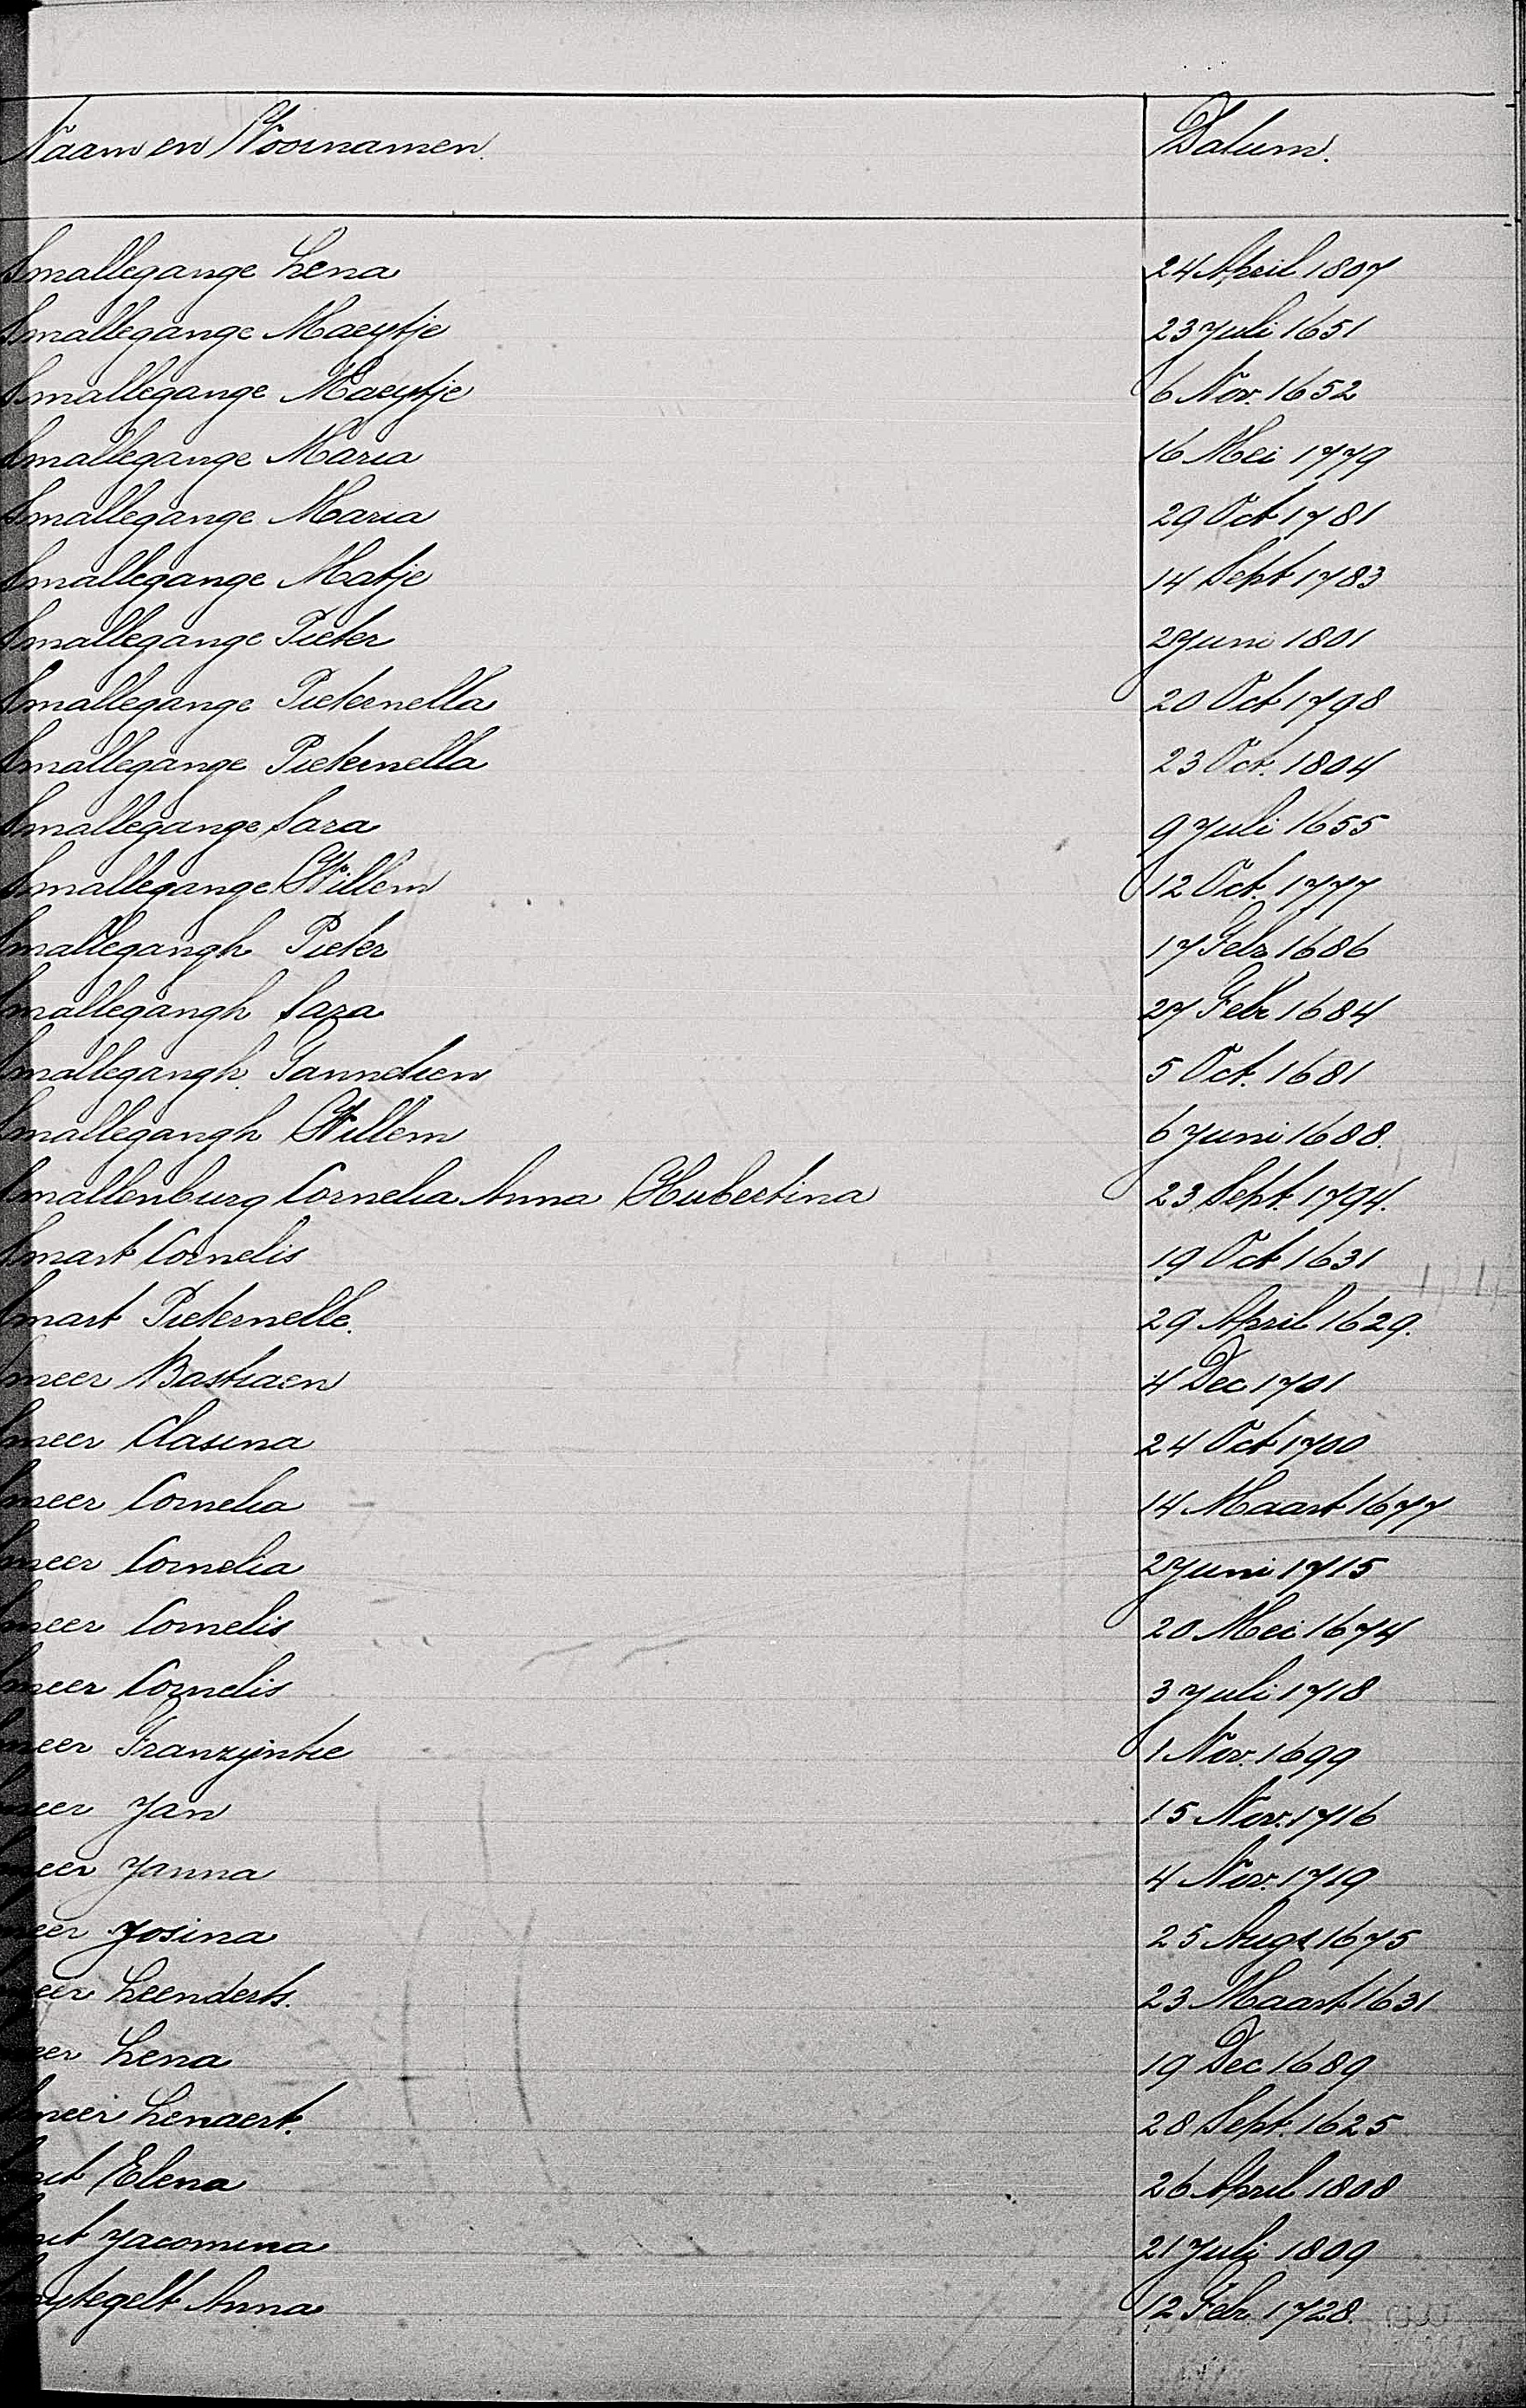 Naam en Voornamen. Datum.
Smallegange Lena 24 April 1807
Smallegange Maeytje 23 Juli 1651
Smallegange Maeytje 6 Nov. 1652
Smallegange Maria 16 Mei 1779
Smallegange Maria 29 Oct 1781
Smallegange Matje 14 Sept 1783
Smallegange Pieter 2 Juni 1801
Smallegange Pieternella 20 Oct 1798
Smallegange Pieternella 23 Oct. 1804
Smallegange Sara 9 Juli 1655
Smallegange Willem 12 Oct. 1777
Smallegangh Pieter 17 Febr 1686
Smallegangh Sara 27 Febr 1684
Smallegangh 5 Oct. 1681
Smallegangh Willem 6 Juni 1688.
Smallenburg Cornelia Anna Hubertina 23 Sept. 1794.
Smart Cornelis 19 Oct 1631
Smart Pieternelle. 29 April 1629.
Smeer Bastiaen 4 Dec 1701
Smeer Clasina 24 Oct 1700
Smeer Cornelia 14 Maart 1677
Smeer Cornelia 2 Juni 1715
Smeer Cornelis 20 Mei 1674
Smeer Cornelis 3 Juli 1718
Smeer Franzijntie 1 Nov. 1699
meer Jan 15 Nov. 1716
meer Janna 4 Nov. 1719
meer Josina 25 Augs 1675
meer Leenderts. 23 Maart 1631
eer Lena 19 Dec 1689
Smeer Lenaert. 28 Sept. 1625
mit Elena 26 April 1808
mit Jacomina 21 Juli 1809
mytegelt Anna 12 Febr. 1728.